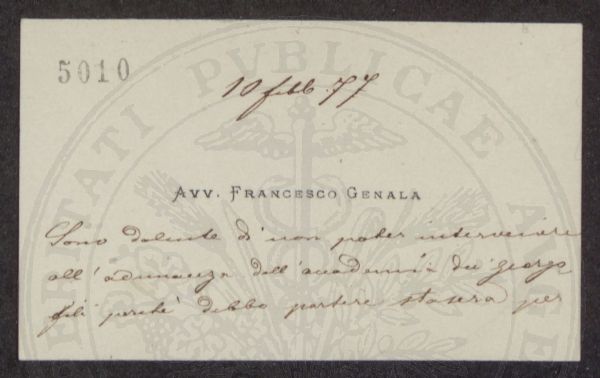 5010
10 febb. 77
AVV. FRANCESCO GENALA
Sono dolente di non poter intervenire
all'adunanza dell'accademia dei georgo
fili perchè debbo partire stasera per
PVBLICAE